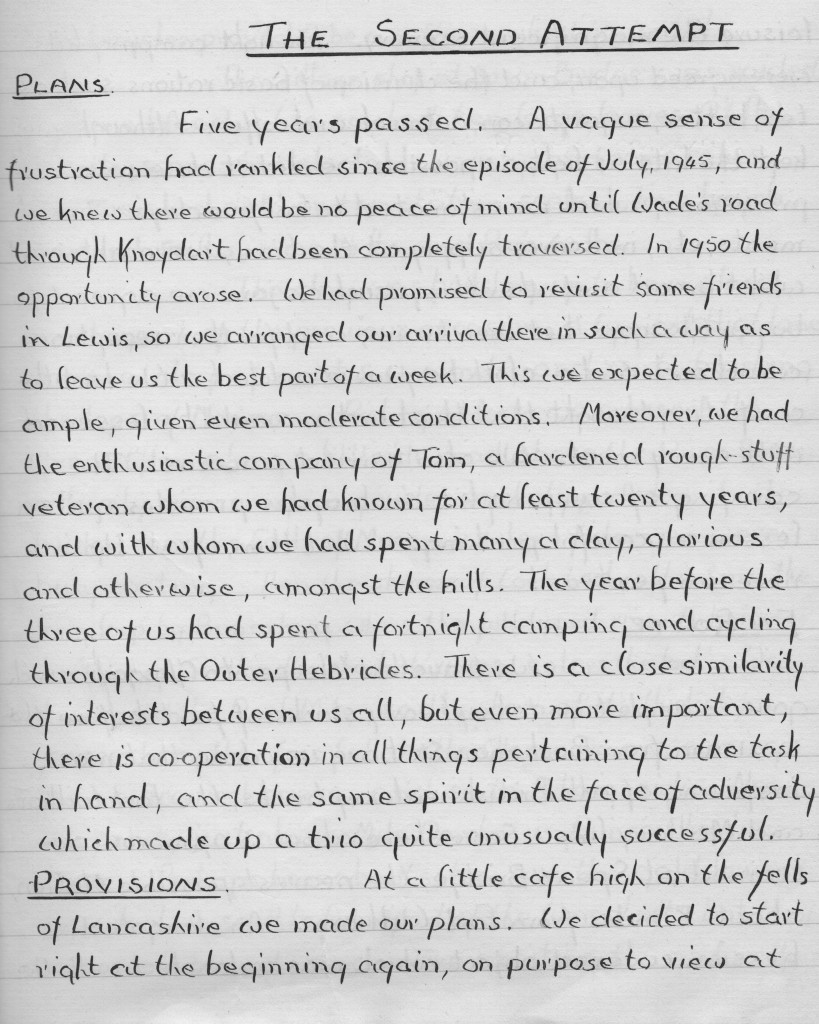 THE SECOND ATTEMPT
PLANS.
Five years passed. A vague sense of
frustration had rankled since the episode of July, 1945, and
we knew there would be no peace of mind until Wade's road
through Knoydart had been completely traversed. In 1950 the
opportunity arose. We had promised to revisit some friends
in Lewis, so we arranged our arrival there in such a way as
to leave us the best part of a week. This we expected to be
ample, given even moderate conditions. Moreover, we had
the enthusiastic company of Tom, a hardened rough-stuff
veteran whom we had known for at least twenty years,
and with whom we had spent many a day, glorious
and otherwise, amongst the hills. The year before the
three of us had spent a fortnight camping and cycling
through the Outer Hebrides. There is a close similarity
of interests between us all, but even more important,
there is co-operation in all things pertaining to the task
in hand, and the same spirit in the face of adversity
which made up a trio quite unusually successful.
PROVISIONS. At a little cafe high on the fells
of Lancashire we made our plans. We decided to start
right at the beginning again, on purpose to view at